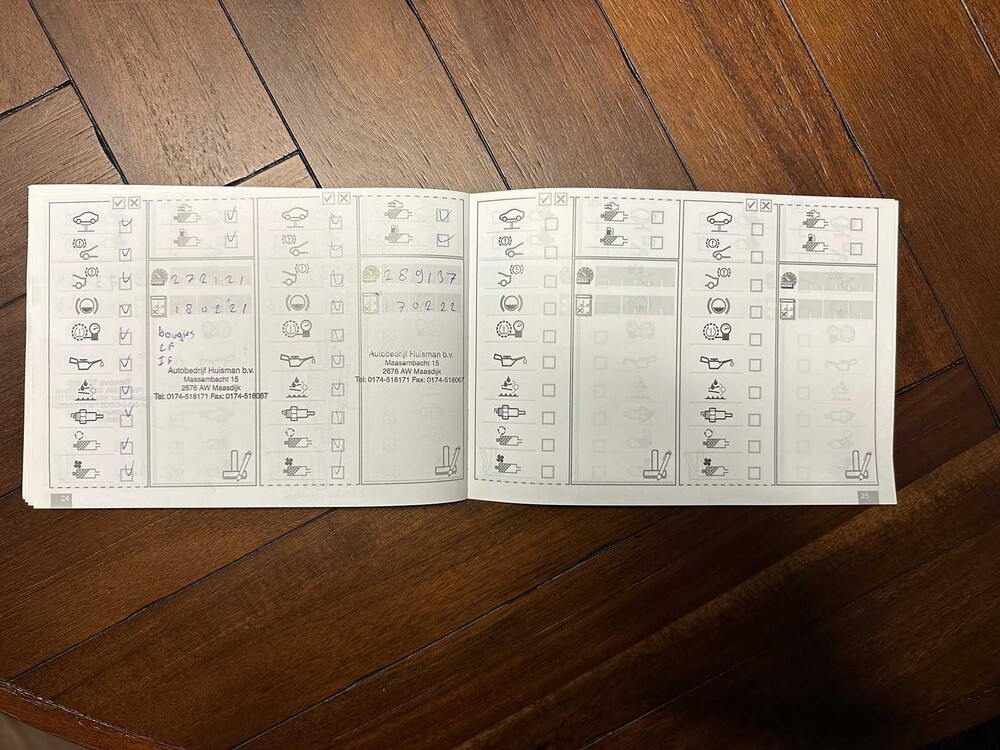 272121
180221
bougies
LF
IF
Autobedrijf Huisman b.v.
Maasambacht 15
2676 AW Maasdijk
Tel: 0174-518171 Fax: 0174-518067
24
289137
170222
Autobedrijf Huisman b.v.
Maasambacht 15
2676 AW Maasdijk
Tel: 0174-518171 Fax: 0174-518067
25